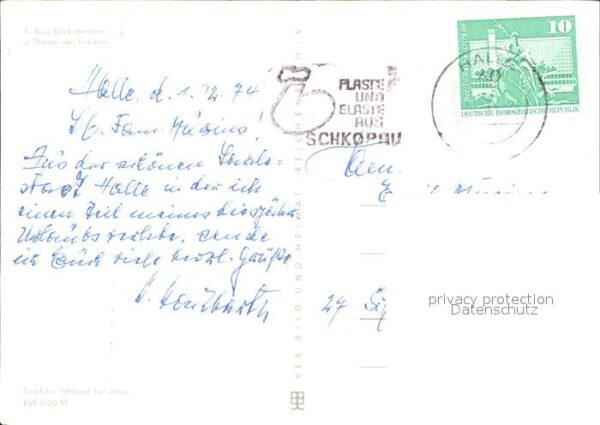 1. Burg Giebichenstein
2. Theater des Friedens
Halle, d. 1.12.74
Lb. Fam.
Aus der schönen Saale-
stadt Halle in der ich
einen Teil meines diesjähr.
Urlaubs verlebe, sende
ich Euch viele herzl. Grüße
PLASTE
UND
ELASTE
AUS
SCHKOPAU
HALLE
10
DEUTSCHE DEMOKRATISCHE REPUBLIK
27
privacy protection
Datenschutz
VEB BILD UND HEIMAT REICHENBACH
EVP 0,20 M